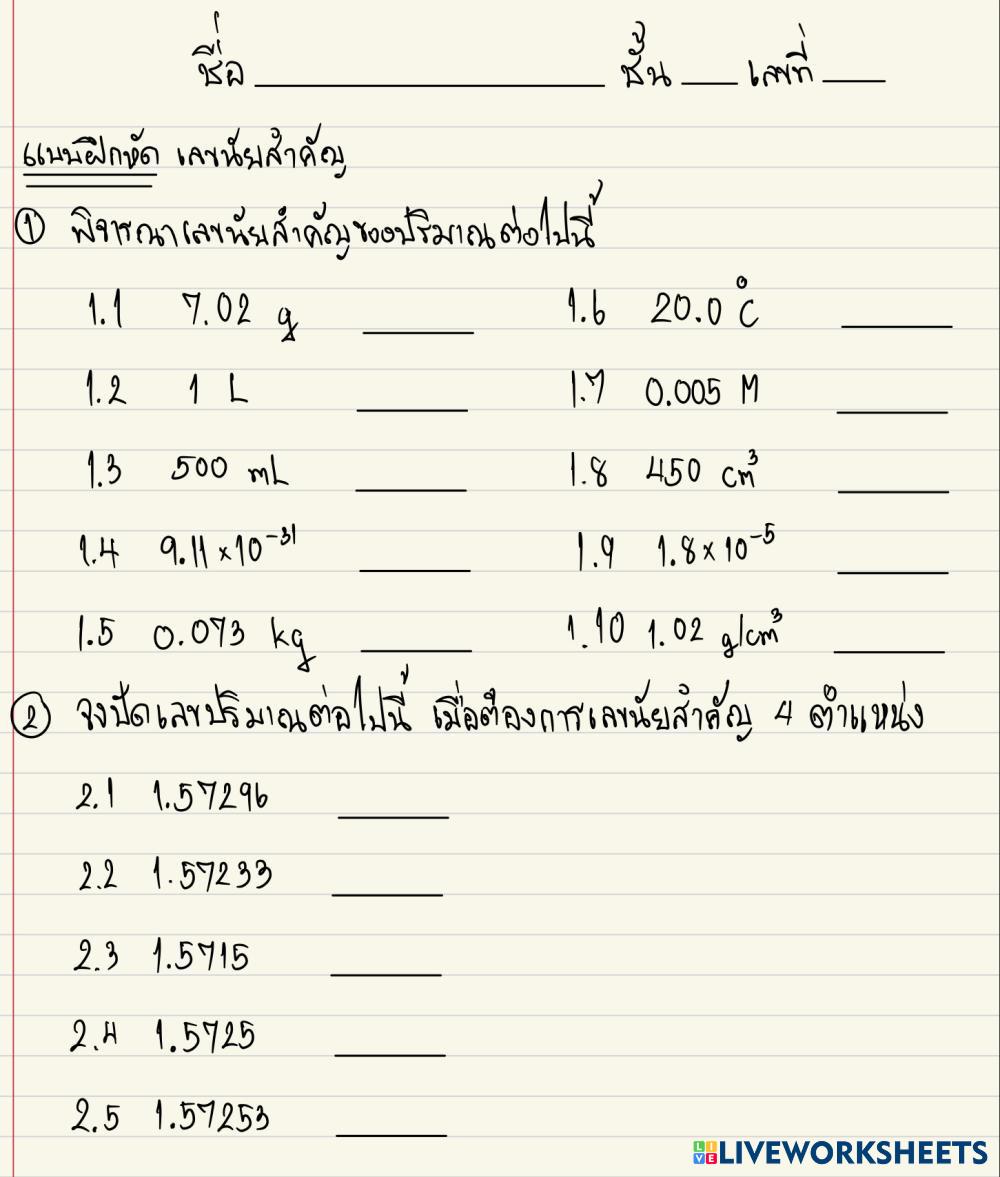 ชื่อ ชั้น เลขที่
แบบฝึกหัด เลขนัยสำคัญ
① พิจารณาเลขนัยสำคัญของปริมาณต่อไปนี้
1.1 7.02 g 1.6 20.0 °C
1.2 1 L 1.7 0.005 M
1.3 500 mL 1.8 450 cm³
1.4 9.11 × 10⁻³¹ 1.9 1.8 × 10⁻⁵
1.5 0.073 kg 1.10 1.02 g/cm³
② จงปัดเลขปริมาณต่อไปนี้ เมื่อต้องการเลขนัยสำคัญ 4 ตำแหน่ง
2.1 1.57296
2.2 1.57233
2.3 1.5715
2.4 1.5725
2.5 1.57253
LIVE LIVEWORKSHEETS